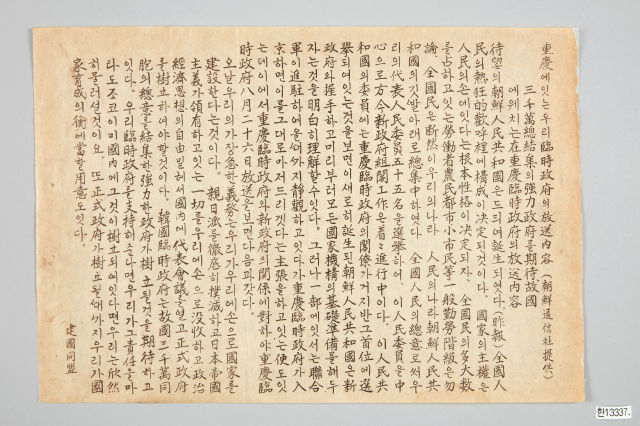 重慶에잇는우리臨時政府의放送内容 (朝鮮通信社提供)
三千萬總結集의强力政府를期待故國
에위치는在重慶臨時政府의放送内容
待望의朝鮮人民共和國은드듸여誕生되엿다(昨報)全國人
民의熱狂的歡呼裡에構成이决定되것이다. 國家의主權은
人民의손에잇다는根本性格이决定되자、全國民의多大数
를占하고잇는勞働者農民都市小市民等一般勤勞階級은勿
論、全國民은断然이우리의나라 人民의나라朝鮮人民共
和國의깃발아래로總集中하엿다. 全國人民의總意로써우
리의代表人民委員五十五名을選擧하여、이人民委員을中
心으로方今新政府組閣工作은着々進行中이다. 이人民共
和國의委員에는重慶臨時政府의閣僚가거지반그首位에選
擧되여잇는것을보면이새로히誕生된朝鮮人民共和國은新
政府와握手하고미리부터모든國家機構의基礎準備를해두
자는것을明白히理解할수잇다. 그러나一部에잇서는聯合
軍이進駐하여올때까지静觀하고잇다가重慶臨時政府가入
京하면이를그대로마저드리겟다는主張을하고잇는便도잇
는데이에서重慶臨時政府와新政府의関係에對하야重慶臨
時政府八月二十六日放送을보면다음과갓다.
오날우리의가장急한義務는우리가우리에손으로國家를
建設한다는것이다. 親日派를徹底히撲滅하고日本帝國
主義가領有하고잇는一切를우리에손으로没收하고政治
經濟思想의自由밑헤서國內에代表會議을열고正式政府
를樹立하여야할것이다. 韓國臨時政府는故國三千萬同
胞의總意를結集한強力한政府가樹立될것을期待하고
잇다. 우리臨時政府를支持해준다면우리가그責任을마
타도조코이미國內에그것이樹立되여잇다면우리는欣然
히물러설것이요、또正式政府가樹立될때까지우리가國
家育成의衝에當할用意도잇다.
建國同盟
한13337.